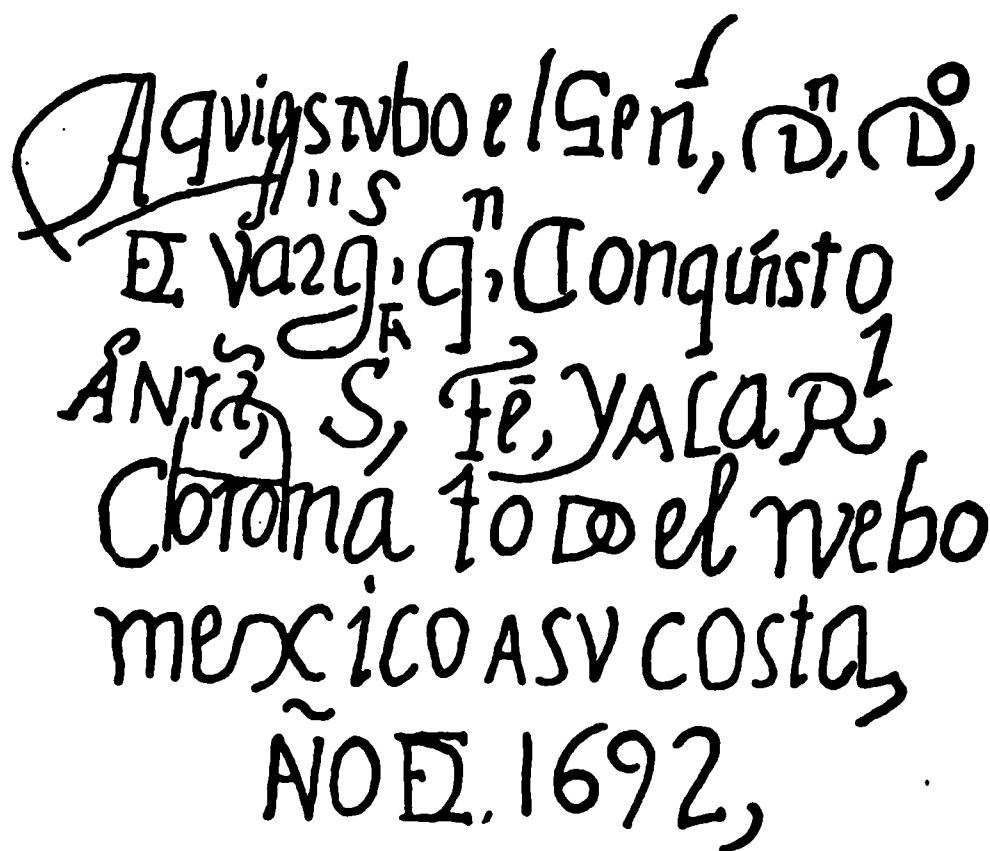 Aqui estubo el Genl, Dn, Do,
DE Vargs: qn, Conquisto
A Nra, S, Fe, Y A La Rl
Corona toDo el nvebo
mexico A SV costa,
AÑO DE. 1692,